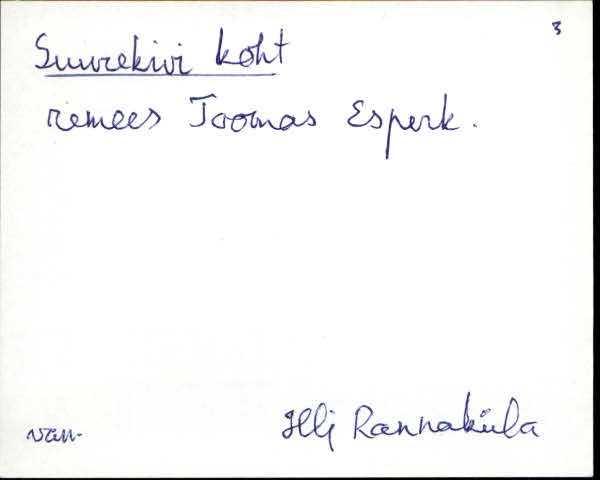 3
Suurekivi koht
remees Toomas Esperk.
Hlj Rannaküla